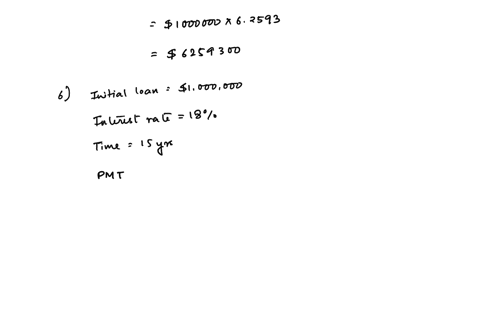 = $1000000 × 6.2593
= $6259300
6) Initial loan = $1,000,000
Interest rate = 18%
Time = 15 yrs
PMT